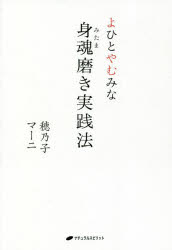 よひとやむみな
身魂磨き実践法
みたま
穂乃子
マーニ
ナチュラルスピリット